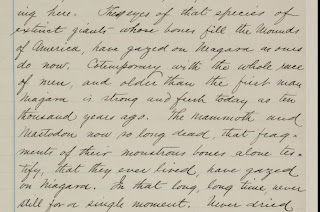 ing here. The eyes of that species of
extinct giants whose bones fill the Mounds
of America, have gazed on Niagara as ours
do now. Cotemporary with the whole race
of men, and older than the first man
Niagara is strong and fresh today as ten
thousand years ago. The Mammoth and
Mastodon now so long dead, that frag-
ments of their monstrous bones alone tes-
tify, that they ever lived, have gazed
on Niagara. In that long, long time, never
still for a single moment. Never dried